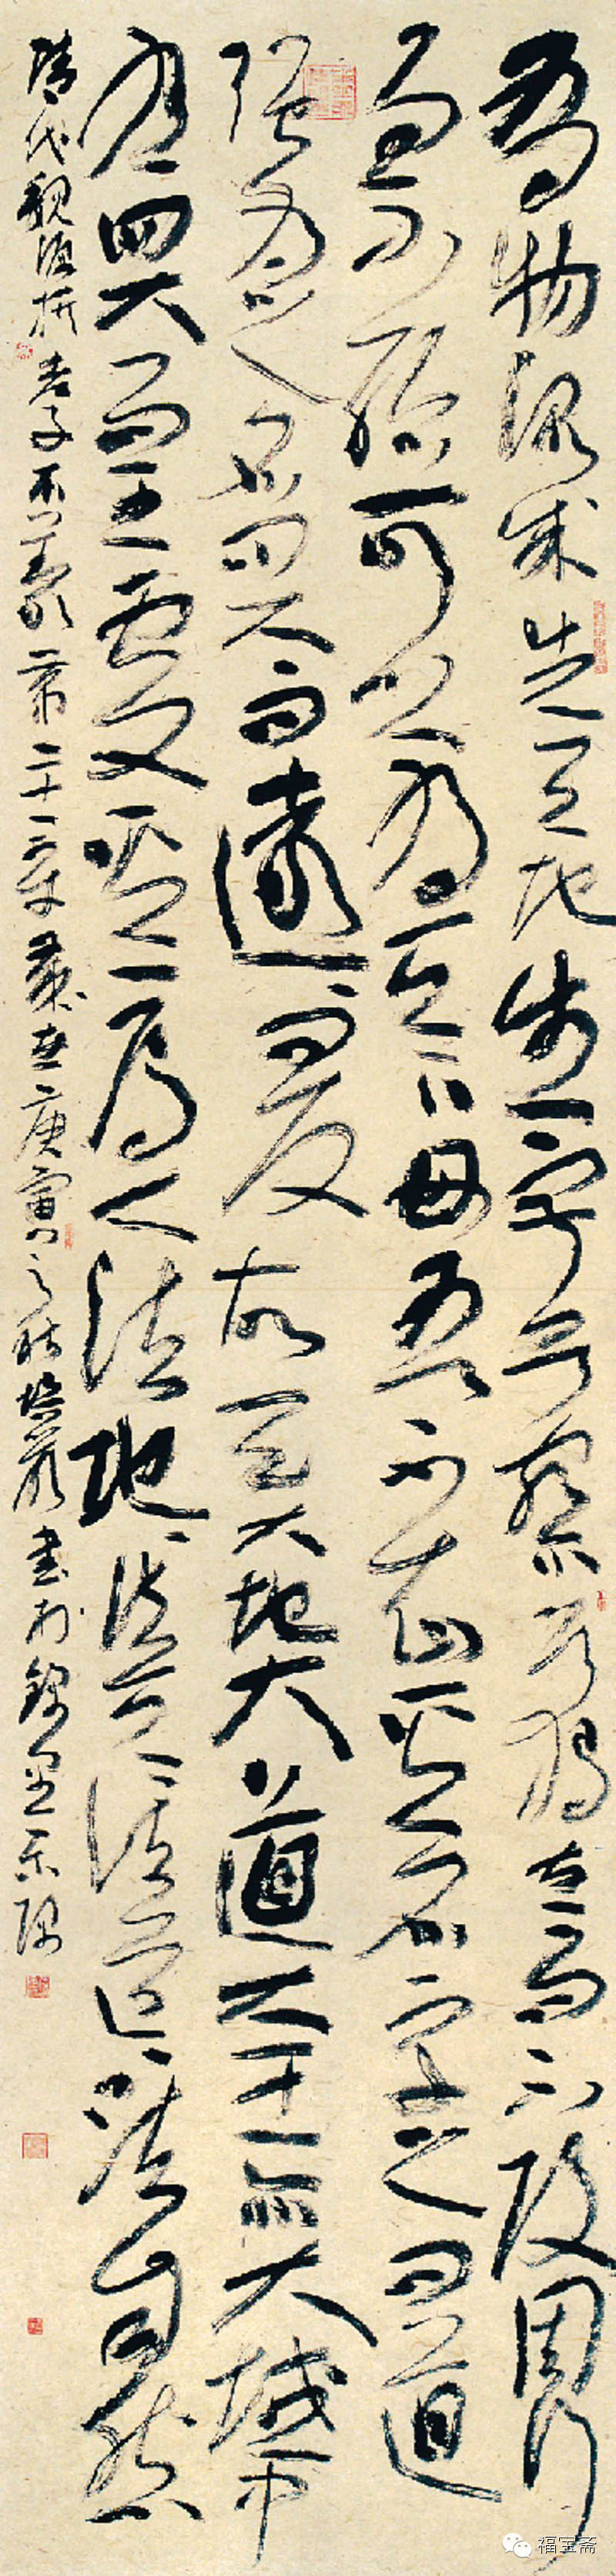 有物混成先天地生寂兮寥兮獨立而不改周行
而不殆可以為天下母吾不知其名字之曰道
強為之名曰大曰遠曰反故天大地大道大王亦大域中
有四大而王處其一焉人法地地法天天法道道法自然
清代魏源撰老子本義第二十一章歲在庚寅之秋書於錦里東隅
福宝斋